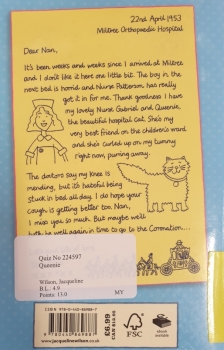 22nd April 1953
Miltree Orthopaedic Hospital
Dear Nan,
It's been weeks and weeks since I arrived at Miltree
and I don't like it here one little bit. The boy in the
next bed is horrid and Nurse Patterson has really
got it in for me. Thank goodness I have
my lovely Nurse Gabriel and Queenie,
the beautiful hospital cat. She's my
very best friend on the children's ward
and she's curled up on my tummy
right now, purring away.
The doctors say my knee is
mending, but it's hateful being
stuck in bed all day. I do hope your
cough is getting better too, Nan,
I miss you so much. But maybe we'll
both be well again in time to go to the Coronation...
Quiz No 224597
Queenie
Wilson, Jacqueline
B.L.: 4.9
Points: 13.0
MY
ISBN 978-0-440-86988-7
9 780440 869887
£6.99
FSC
www.jacquelinewilson.co.uk